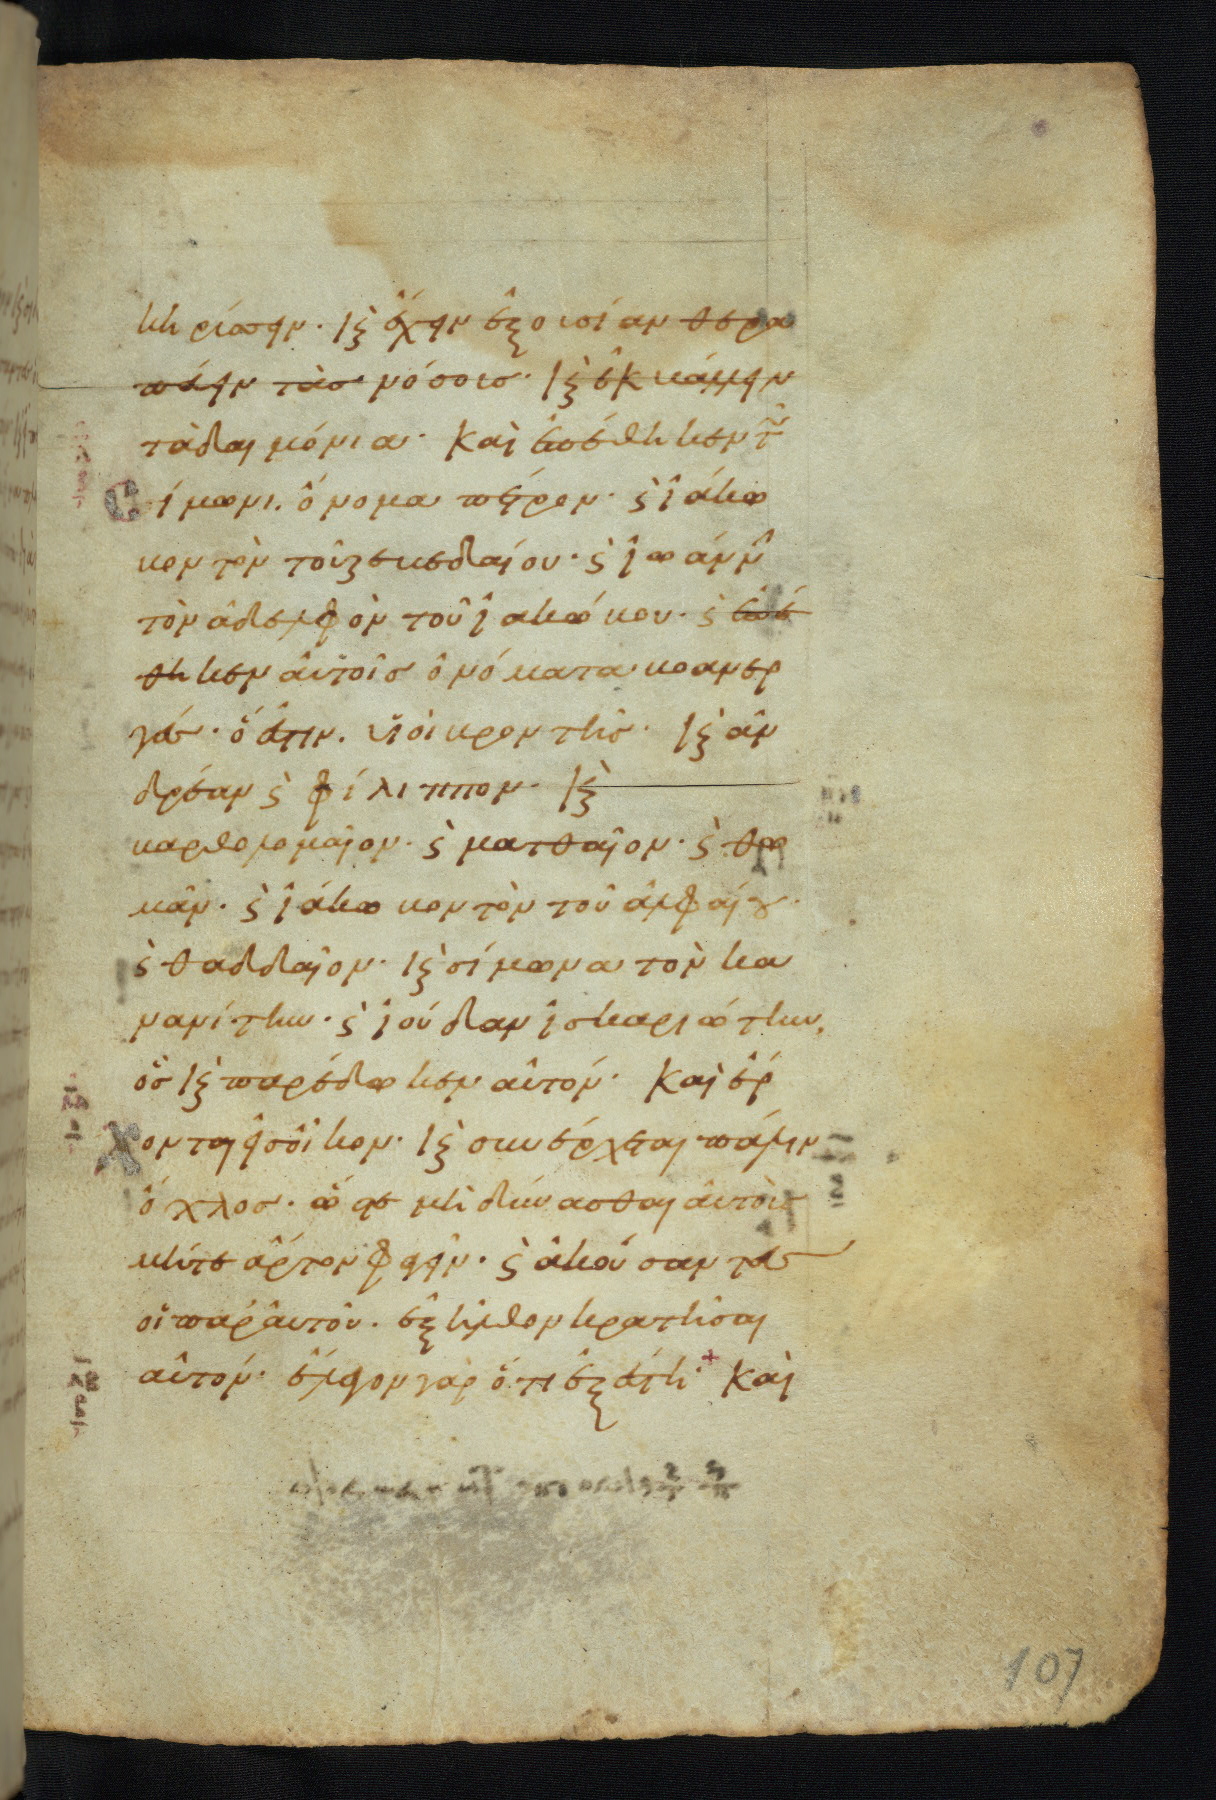 κηρύσσειν· κ(αὶ) ἔχειν ἐξουσίαν θερα
πεύειν τὰσ νόσουσ· κ(αὶ) ἐκβάλλειν
τὰ δαιμόνια· Καὶ ἐπέθηκεν τῶ
Σίμωνι. ὄνομα πέτρον· κ(αὶ) ἰάκω
βον τὸν τοῦ ζεβεδαίου· κ(αὶ) ἰωάννη
τὸν ἀδελφὸν τοῦ ἰακώβου· κ(αὶ) ἐπέ
θηκεν αὐτοῖσ ὀνόματα βοανερ
γέσ· ὅ ἐστιν. υἱοὶ βροντῆσ· κ(αὶ) ἀν
δρέαν κ(αὶ) φίλιππον· κ(αὶ)
βαρθολομαῖον· κ(αὶ) ματθαῖον· κ(αὶ) θω
μᾶν· κ(αὶ) ἰάκωβον τὸν τοῦ ἀλφαίου·
κ(αὶ) θαδδαῖον· κ(αὶ) σίμωνα τὸν κα
νανίτην· κ(αὶ) ἰούδαν ἰσκαριώτην,
ὃσ κ(αὶ) παρέδωκεν αὐτόν· Καὶ ἔρ
Χονται εἰσ οἶκον· κ(αὶ) συνέρχεται πάλιν
ὄχλοσ· ὥστε μὴ δύνασθαι αὐτοὺσ
μήτε ἄρτον φαγεῖν· κ(αὶ) ἀκούσαντεσ
οἱ παρ' αὐτοῦ. ἐξῆλθον κρατῆσαι
αὐτόν· ἔλεγον γὰρ ὅτι ἐξέστη· + Καὶ
107